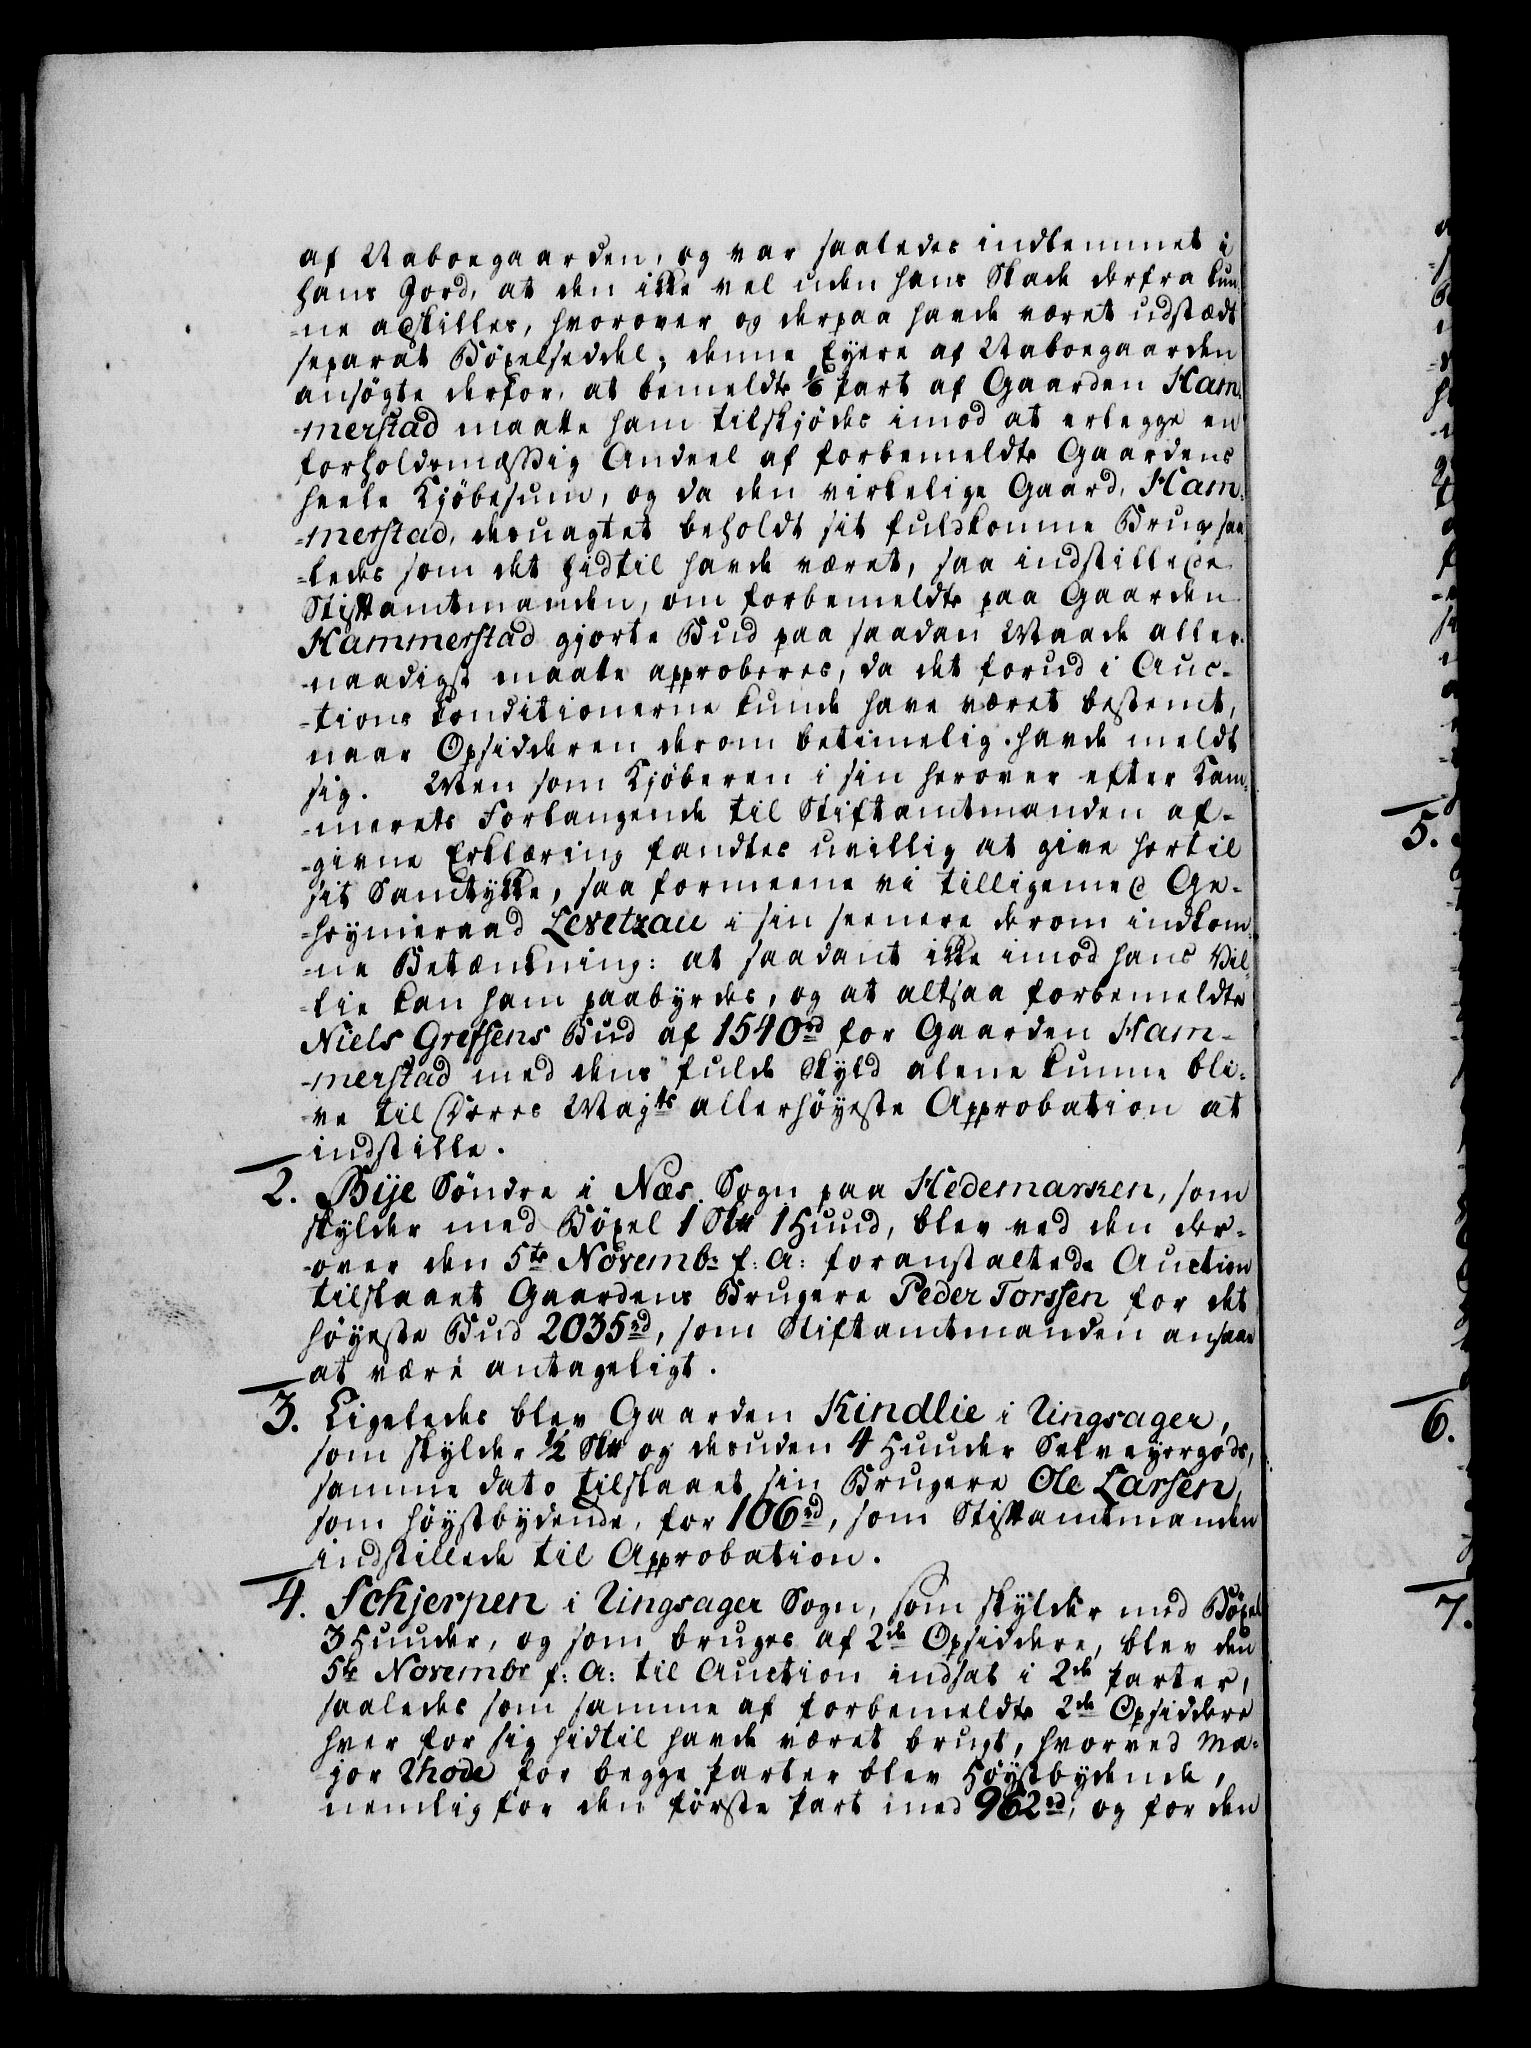 af Naboegaarden, og var saaledes indlemmet i
hans Jord, at den ikke vel uden hans Skade derfra kun-
-ne adskilles, hvorover og derpaa havde været udstædt
separat Böxelseddel; denne Eyere af Naboegaarden
ansögte derfor, at bemeldte 1/6 Part af Gaarden Ham-
-merstad maatte ham tilskjödes imod at erlegge en
forholdsmæssig Andeel af forbemeldte Gaardens
heele Kjöbesum, og da den virkelige Gaard, Ham-
-merstad, desuagtet beholdt sit fuldkomne Brug saa-
-ledes som det hidtil havde været, saa indstillede
Stiftamtmanden, om forbemeldte paa Gaarden
Hammerstad gjorte Bud paa saadan Maade aller-
-naadigst maatte approberes, da det forud i Auc-
-tions Conditionerne kunde have været bestemt,
naar Opsidderen derom betimelig havde meldt
sig. Men som Kjöberen i sin herover efter Kam-
-merets Forlangende til Stiftamtmanden af-
-givne Erklæring fandtes uvillig at give hertil
sit Samtykke, saa formeene vi tilligemed Ge-
-heymeraad Levetzau i sin seenere derom indkom-
-ne Betænkning: at saadant ikke imod hans Vil-
-lie kan ham paabyrdes, og at altsaa forbemeldte
Niels Grefsens Bud af 1540rd for Gaarden Ham-
-merstad med dens fulde Skyld alene kunne bli-
-ve til Deres Majts allerhöyeste Approbation at
indstille.
2. Bije Söndre i Næs Sogn paa Hedemarken, som
skylder med Böxel 1 Skd 1 Huud, blev ved den der-
-over den 5te Novembr f: A: foranstaltede Auction
tilslaaet Gaardens Brugere Peder Torssen for det
höyeste Bud 2035rd, som Stiftamtmanden ansaae
at være antageligt.
3. Ligeledes blev Gaarden Kindlie i Ringsager,
som skylder 1/2 Skd og desuden 4 Huuder Selveyergods,
samme dato tilslaaet sin Brugere Ole Larsen,
som höystbydende, for 106rd, som Stiftamtmanden
indstillede til Approbation.
4. Schjerpen i Ringsager Sogn, som skylder med Böxel
3 Huuder, og som bruges af 2de Opsiddere, blev den
5te Novembr f: A: til Auction indsat i 2de Parter,
saaledes som samme af forbemeldte 2de Opsiddere
hver for sig hidtil havde været brugt, hvorved Ma-
jor Rhode for begge Parter blev Höystbydende,
nemlig for den förste Part med 962rd, og for den
5.
6.
7.